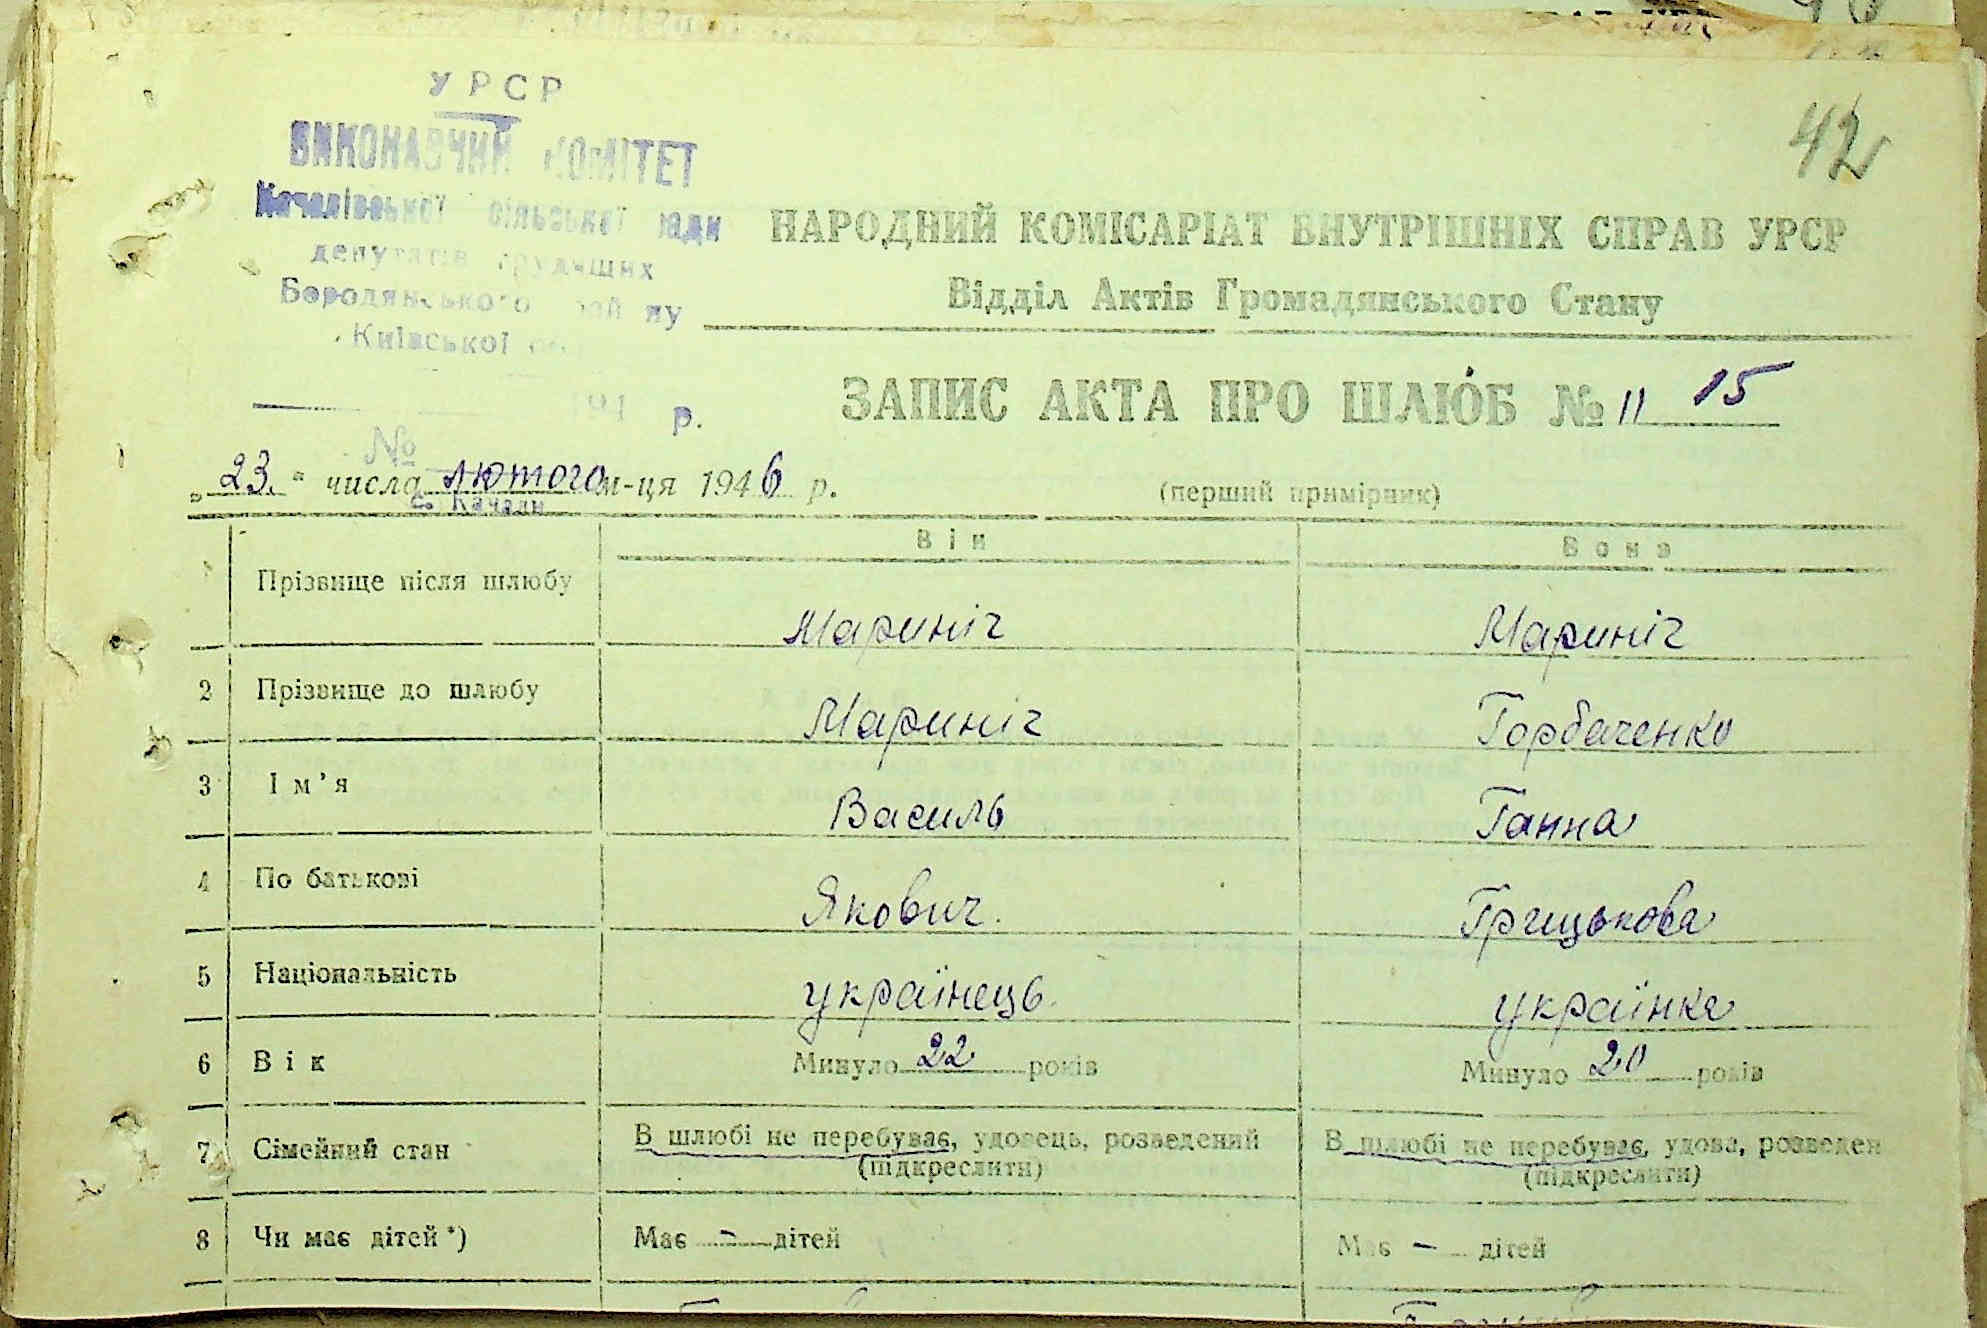 42
УРСР
ВИКОНАВЧИЙ КОМІТЕТ
Качалівської сільської ради
депутатів трудящих
Бородянського району
Київської
194 р.
№
НАРОДНИЙ КОМІСАРІАТ ВНУТРІШНІХ СПРАВ УРСР
Відділ Актів Громадянського Стану
ЗАПИС АКТА ПРО ШЛЮБ № 11 15
„23." числа лютого м-ця 1946 р.
с. Качали
(перший примірник)
Він Вона
1 Прізвище після шлюбу Мариніч Мариніч
2 Прізвище до шлюбу Мариніч Горбаченко
3 Ім'я Василь Ганна
4 По батькові Якович. Грицькова
5 Національність українець. українка
6 Вік Минуло 22 років Минуло 20 років
7 Сімейний стан В шлюбі не перебуває, удовець, розведений В шлюбі не перебуває, удова, розведен
(підкреслити) (підкреслити)
8 Чи має дітей *) Має - дітей Має - дітей